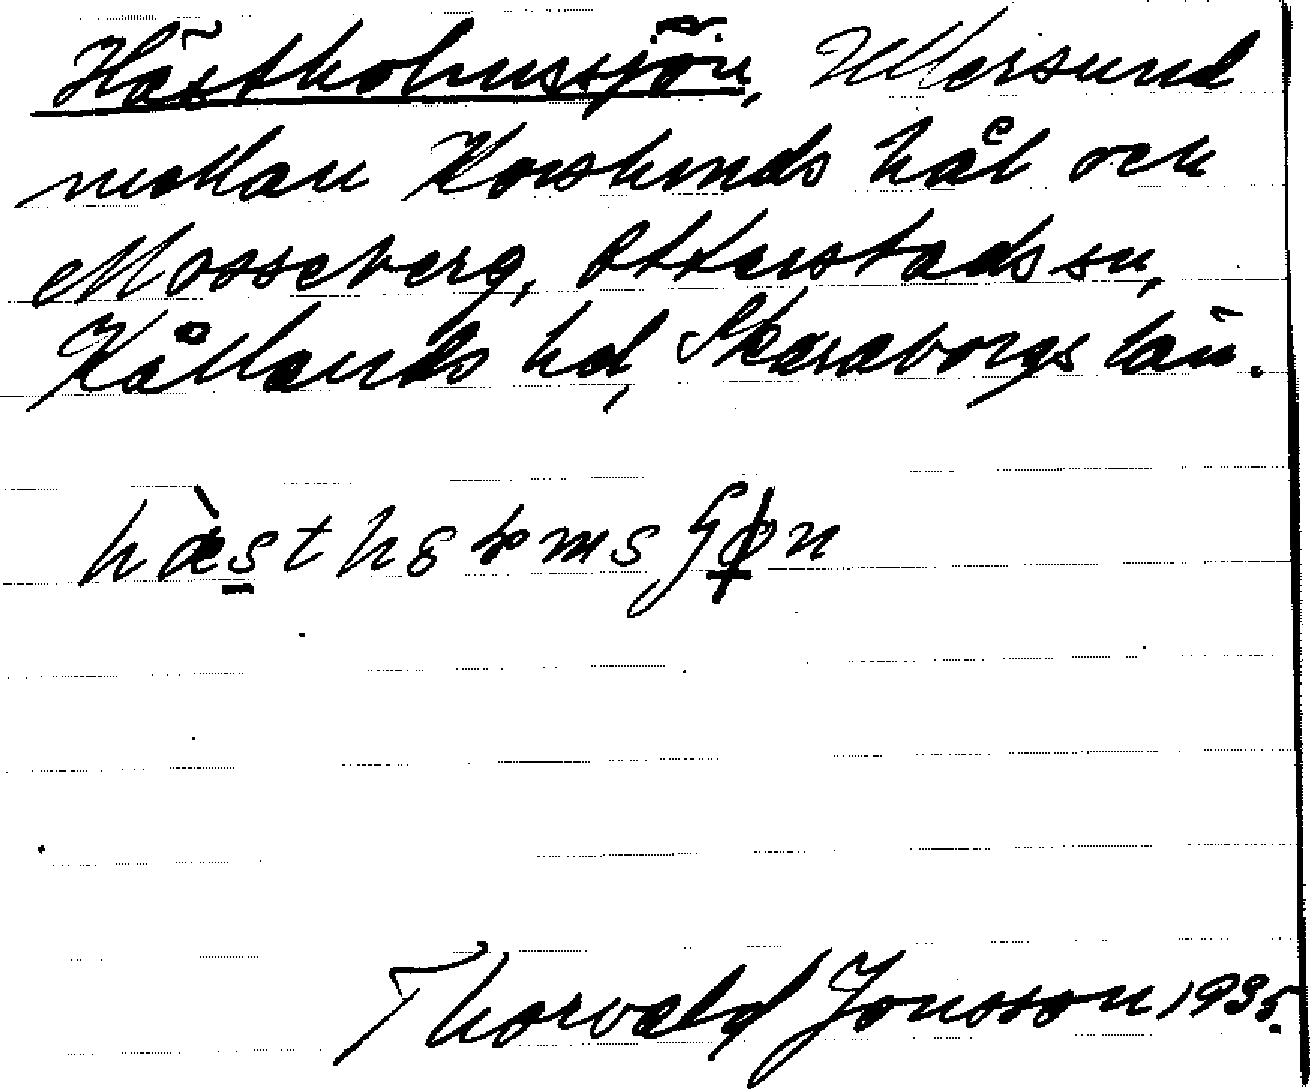 Hästholmssjön, Ullersund
mellan Korshunds hål och
Mosseberg, Otterstads sn,
Kållands hd, Skaraborgs län.
Thorvald Jonsson 1935.